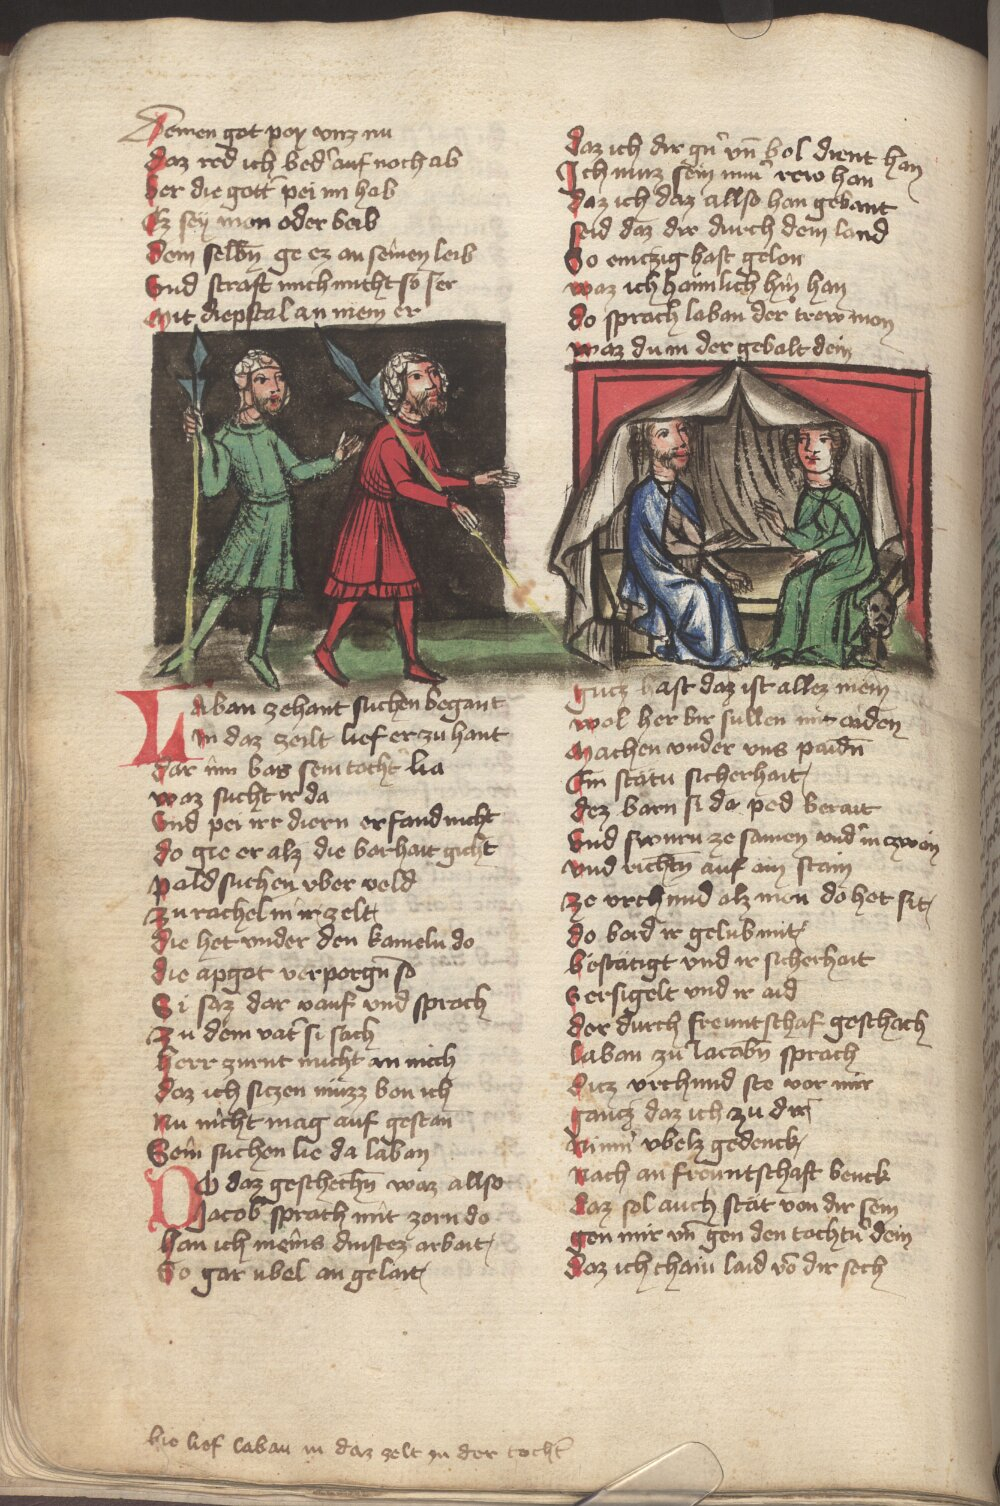 Nemen got poy vnz nu
daz red ich bed' auf noch ab
ber die gött' pei im hab
Ez sey man oder beib
dem selbn̄ ge ez an seinen leib
vnd straft mich nicht so ser
mit diepstal an mein er
Laban zehant suchen begant
In daz zeilt lief er zu hant
dar inn bas sein tocht' lia
waz sucht ir da
vnd pei irr diern er fand nicht
do gie er alz die barhait gicht
pald suchen vber veld
zu rachel in ir zelt
die het vnder den kameln do
die apgöt verporgn̄ so
Si saz dar vauf vnd sprach
zu dem vat' si sach
herr zürnt nicht an mich
daz ich siczen müzz ban ich
nu nicht mag auf gestan
Sein suchen lie da laban
Do daz geschechn̄ waz allso
Jacob sprach mit zorn do
han ich meins dinstez arbait
So gar übel an gelait
daz ich dir gn̄ vn̄ bol dient han
Ich muz sein rew han
daz ich daz allso han gebant
seid daz dir durch dem land
So emczig hast gelon
waz ich haimlich hin han
do sprach laban der trew man
waz du in der gebalt dein
gucz hast daz ist allez mein
wol her bir sullen mit aiden
machen vnder vns paidn̄
Ein stätü sicherhait
dez barn si da ped berait
vnd swurn ze samen vnd in zwain
vnd richtn̄ auf ain stain
ze vrchund alz man do het sit
do bard ir gelüb mit
bestätigt vnd ir sicherhait
versigelt vnd ir aid
der durch freuntschaf geschach
laban zu Jacobn̄ sprach
dicz vrchund ste vor mir
gancz daz ich zu dir
nimm' vbelz gedenck
nach an freuntschaft benck
daz sol auch stät von dir sein
gen mir vn̄ gen den tochtn̄ dein
daz ich chain laid vō dir sech
bie lief laban in daz zelt zu der tocht'